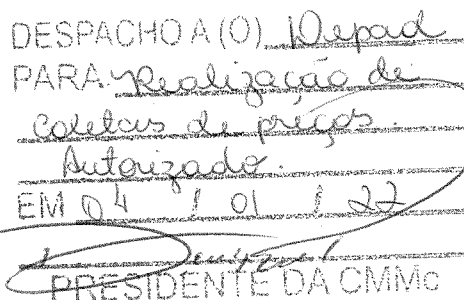 DESPACHO A (O) Depad
PARA: Realização de
coletas de preços.
Autorizado.
EM 04 / 01 / 22
PRESIDENTE DA CMMc